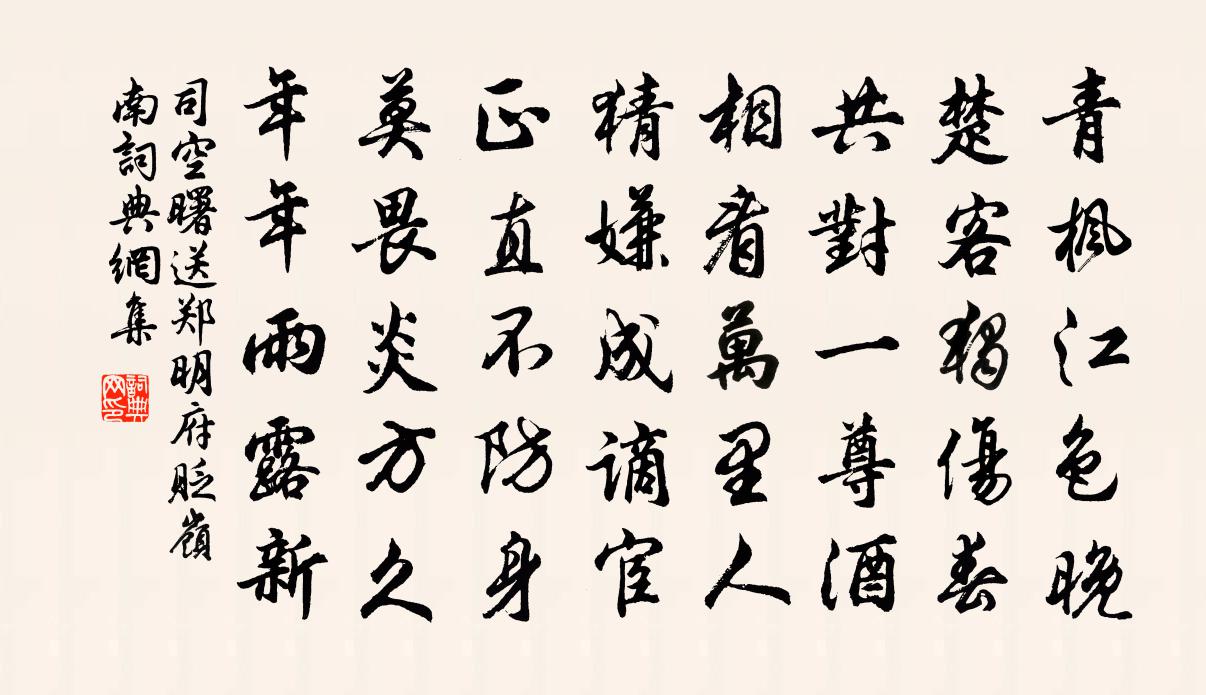 青楓江色晚
楚客獨傷春
共對一尊酒
相看萬里人
猜嫌成謫宦
正直不防身
莫畏炎方久
年年雨露新
司空曙送郑明府貶嶺
南詞典網集
詞典网印